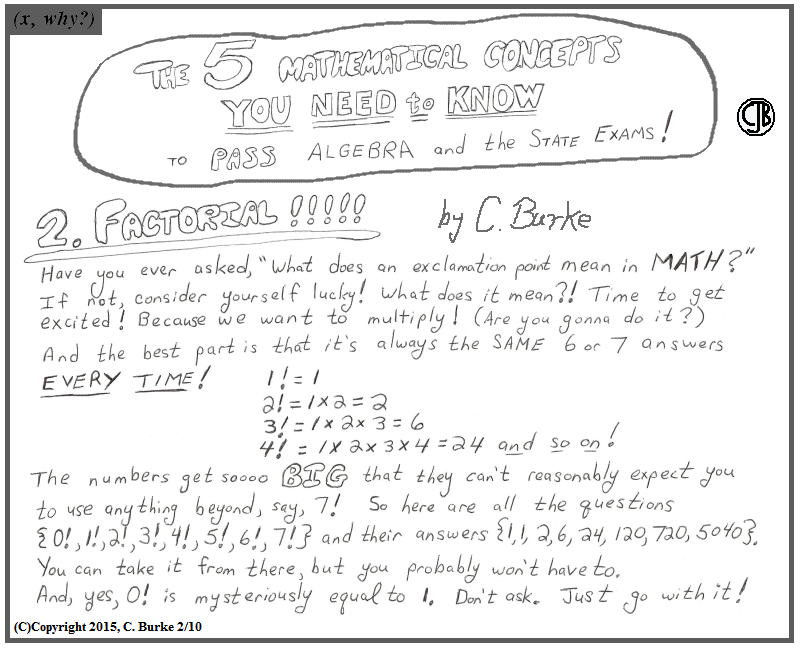 (x, why?)
THE 5 MATHEMATICAL CONCEPTS
YOU NEED to KNOW
TO PASS ALGEBRA and the STATE EXAMS!
CJB
2. FACTORIAL !!!!! by C. Burke
Have you ever asked, "What does an exclamation point mean in MATH?"
If not, consider yourself lucky! What does it mean?! Time to get
excited! Because we want to multiply! (Are you gonna do it?)
And the best part is that it's always the SAME 6 or 7 answers
EVERY TIME! 1! = 1
2! = 1 x 2 = 2
3! = 1 x 2 x 3 = 6
4! = 1 x 2 x 3 x 4 = 24 and so on!
The numbers get soooo BIG that they can't reasonably expect you
to use anything beyond, say, 7! So here are all the questions
{0!, 1!, 2!, 3!, 4!, 5!, 6!, 7!} and their answers {1, 1, 2, 6, 24, 120, 720, 5040}.
You can take it from there, but you probably won't have to.
And, yes, 0! is mysteriously equal to 1. Don't ask. Just go with it!
(C)Copyright 2015, C. Burke 2/10